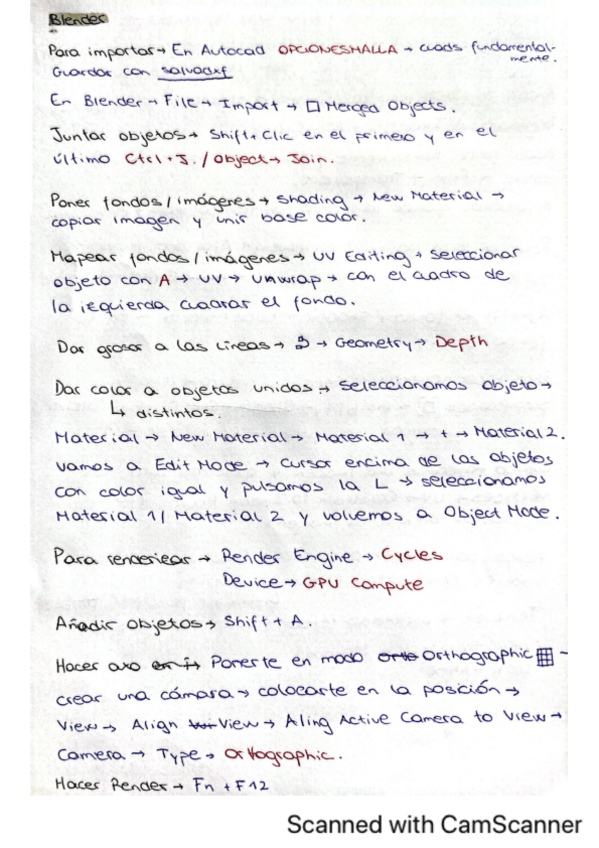 Blender
Para importar → En Autocad OPCIONESMALLA → cuads fundamental-
mente.
Guardar con salvadxf
En Blender → File → Import → □ Merged Objects.
Juntar objetos → Shift + Clic en el primero y en el
último Ctrl + J. / Object → Join.
Poner fondos / imágenes → Shading → New Material →
copiar imagen y unir base color.
Mapear fondos / imágenes → UV Editing → Seleccionar
objeto con A → UV → Unwrap → con el cuadro de
la izquierda cuadrar el fondo.
Dar grosor a las líneas → → Geometry → Depth
Dar color a objetos unidos → Seleccionamos objeto →
↳ distintos.
Material → New Material → Material 1 → + → Material 2.
Vamos a Edit Mode → Cursor encima de los objetos
con color igual y pulsamos la L → seleccionamos
Material 1 / Material 2 y volvemos a Object Mode.
Para renderizar → Render Engine → Cycles
Device → GPU Compute
Añadir objetos → Shift + A.
Hacer axo Ponerte en modo Orthographic →
crear una cámara → colocarte en la posición →
View → Align View → Aling Active Camera to View →
Camera → Type → Orthographic.
Hacer Render → Fn + F12
Scanned with CamScanner